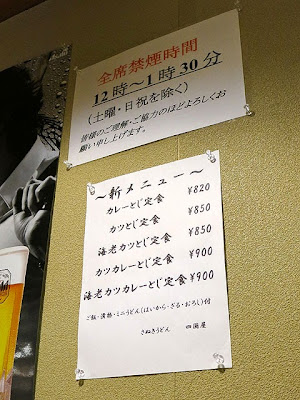 全席禁煙時間
12時～1時30分
(土曜・日祝を除く)
皆様のご理解・ご協力のほどよろしくお
願い申し上げます。
～新メニュー～
カレーとじ定食 ¥820
カツとじ定食 ¥850
海老カツとじ定食 ¥850
カツカレーとじ定食 ¥900
海老カツカレーとじ定食 ¥900
ご飯・漬物・ミニうどん(はいから・ざる・おろし)付
さぬきうどん 四国屋